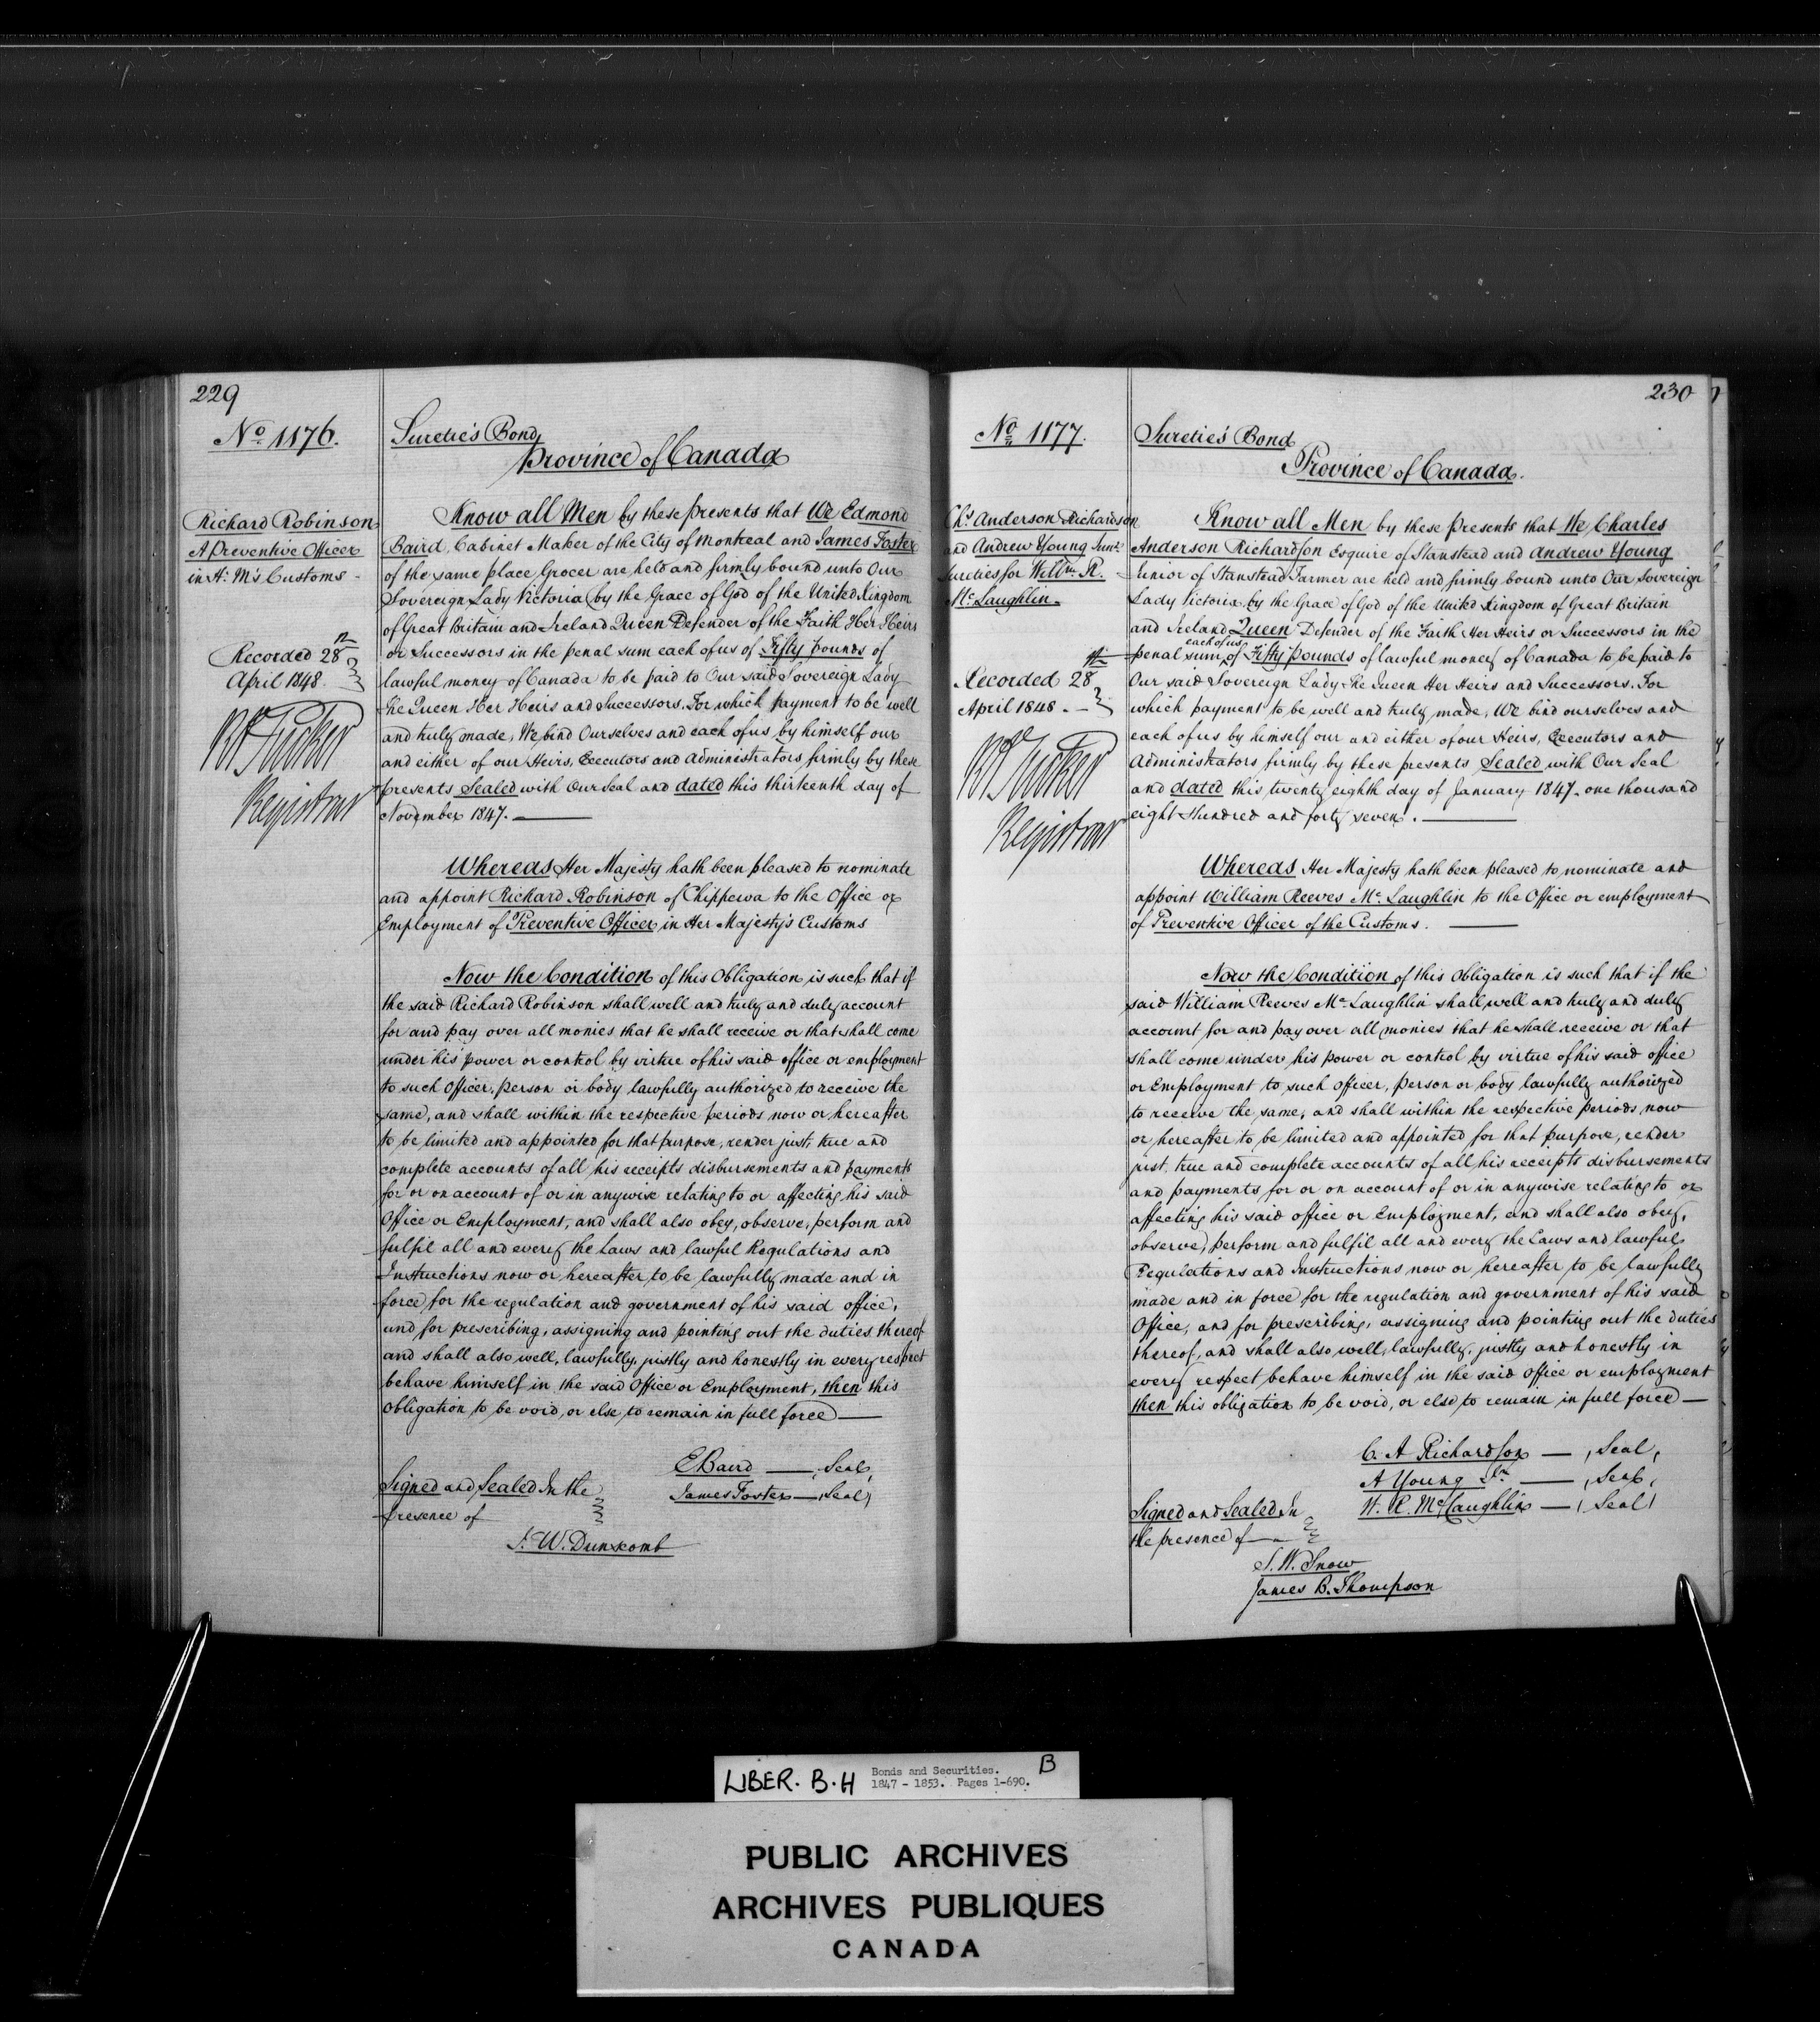 229
No. 1176.
Richard Robinson
A Preventive Officer
in H. M's Customs -
Recorded 28th
April 1848.
R A Tucker
Registrar
Suretie's Bond
Province of Canada
Know all Men by these presents that We Edmond
Baird, Cabinet Maker of the City of Montreal and James Foster
of the same place Grocer are held and firmly bound unto Our
Sovereign Lady Victoria by the Grace of God of the United Kingdom
of Great Britain and Ireland Queen Defender of the Faith Her Heirs
or Successors in the penal sum each of us of Fifty pounds of
lawful money of Canada to be paid to Our said Sovereign Lady
the Queen Her Heirs and Successors. For which payment to be well
and truly made, We bind Ourselves and each of us by himself our
and either of our Heirs, Executors and Administrators firmly by these
presents Sealed with Our Seal and dated this thirteenth day of
November 1847.
Whereas Her Majesty hath been pleased to nominate
and appoint Richard Robinson of Chippewa to the Office or
Employment of Preventive Officer in Her Majesty's Customs
Now the Condition of this Obligation is such that if
the said Richard Robinson shall well and truly and duly account
for and pay over all monies that he shall receive or that shall come
under his power or control by virtue of his said office or employment
to such Officer, person or body lawfully authorized to receive the
same, and shall within the respective periods now or hereafter
to be limited and appointed for that purpose, render just, true and
complete accounts of all his receipts disbursements and payments
for or on account of or in anywise relating to or affecting his said
Office or Employment, and shall also obey, observe, perform and
fulfil all and every the Laws and lawful Regulations and
Instructions now or hereafter to be lawfully made and in
force for the regulation and government of his said office,
and for prescribing, assigning and pointing out the duties thereof
and shall also well, lawfully, justly and honestly in every respect
behave himself in the said Office or Employment, then this
obligation to be void, or else to remain in full force —
E Baird — Seal
James Foster — Seal
Signed and Sealed In the
presence of
J. W. Dunscomb
230
No. 1177.
Chs. Anderson Richardson
and Andrew Young Junr.
Sureties for Willm. R.
Mc.Laughlin.
Recorded 28th
April 1848. -
R A Tucker
Registrar
Suretie's Bond
Province of Canada.
Know all Men by these Presents that We Charles
Anderson Richardson Esquire of Stanstead and Andrew Young
Junior of Stanstead Farmer are held and firmly bound unto Our Sovereign
Lady Victoria by the Grace of God of the United Kingdom of Great Britain
and Ireland Queen Defender of the Faith Her Heirs or Successors in the
each of us
penal sum of Fifty pounds of lawful money of Canada to be paid to
Our said Sovereign Lady The Queen Her Heirs and Successors. For
which payment to be well and truly made, We bind ourselves and
each of us by himself our and either of our Heirs, Executors and
Administrators firmly by these presents Sealed with Our Seal
and dated this twenty eighth day of January 1847. one thousand
eight Hundred and forty seven.
Whereas Her Majesty hath been pleased to nominate and
appoint William Reeves Mc.Laughlin to the Office or employment
of Preventive Officer of the Customs.
Now the Condition of this Obligation is such that if the
said William Reeves Mc.Laughlin shall well and truly and duly
account for and pay over all monies that he shall receive or that
shall come under his power or control by virtue of his said office
or Employment to such Officer, person or body lawfully authorized
to receive the same, and shall within the respective periods now
or hereafter to be limited and appointed for that purpose, render
just, true and complete accounts of all his receipts disbursements
and payments for or on account of or in anywise relating to or
affecting his said office or Employment, and shall also obey,
observe, perform and fulfil all and every the Laws and lawful
Regulations and Instructions now or hereafter to be lawfully
made and in force for the regulation and government of his said
Office, and for prescribing, assigning and pointing out the duties
thereof, and shall also well, lawfully, justly and honestly in
every respect behave himself in the said Office or employment
then this obligation to be void, or else to remain in full force —
C. A Richardson — Seal
A Young Jr. — Seal
W. R. McLaughlin — Seal
Signed and Sealed In
the presence of
J. W. Snow
James B. Thompson
LIBER. B.H
Bonds and Securities.
1847 - 1853. Pages 1-690.
B
PUBLIC ARCHIVES
ARCHIVES PUBLIQUES
CANADA